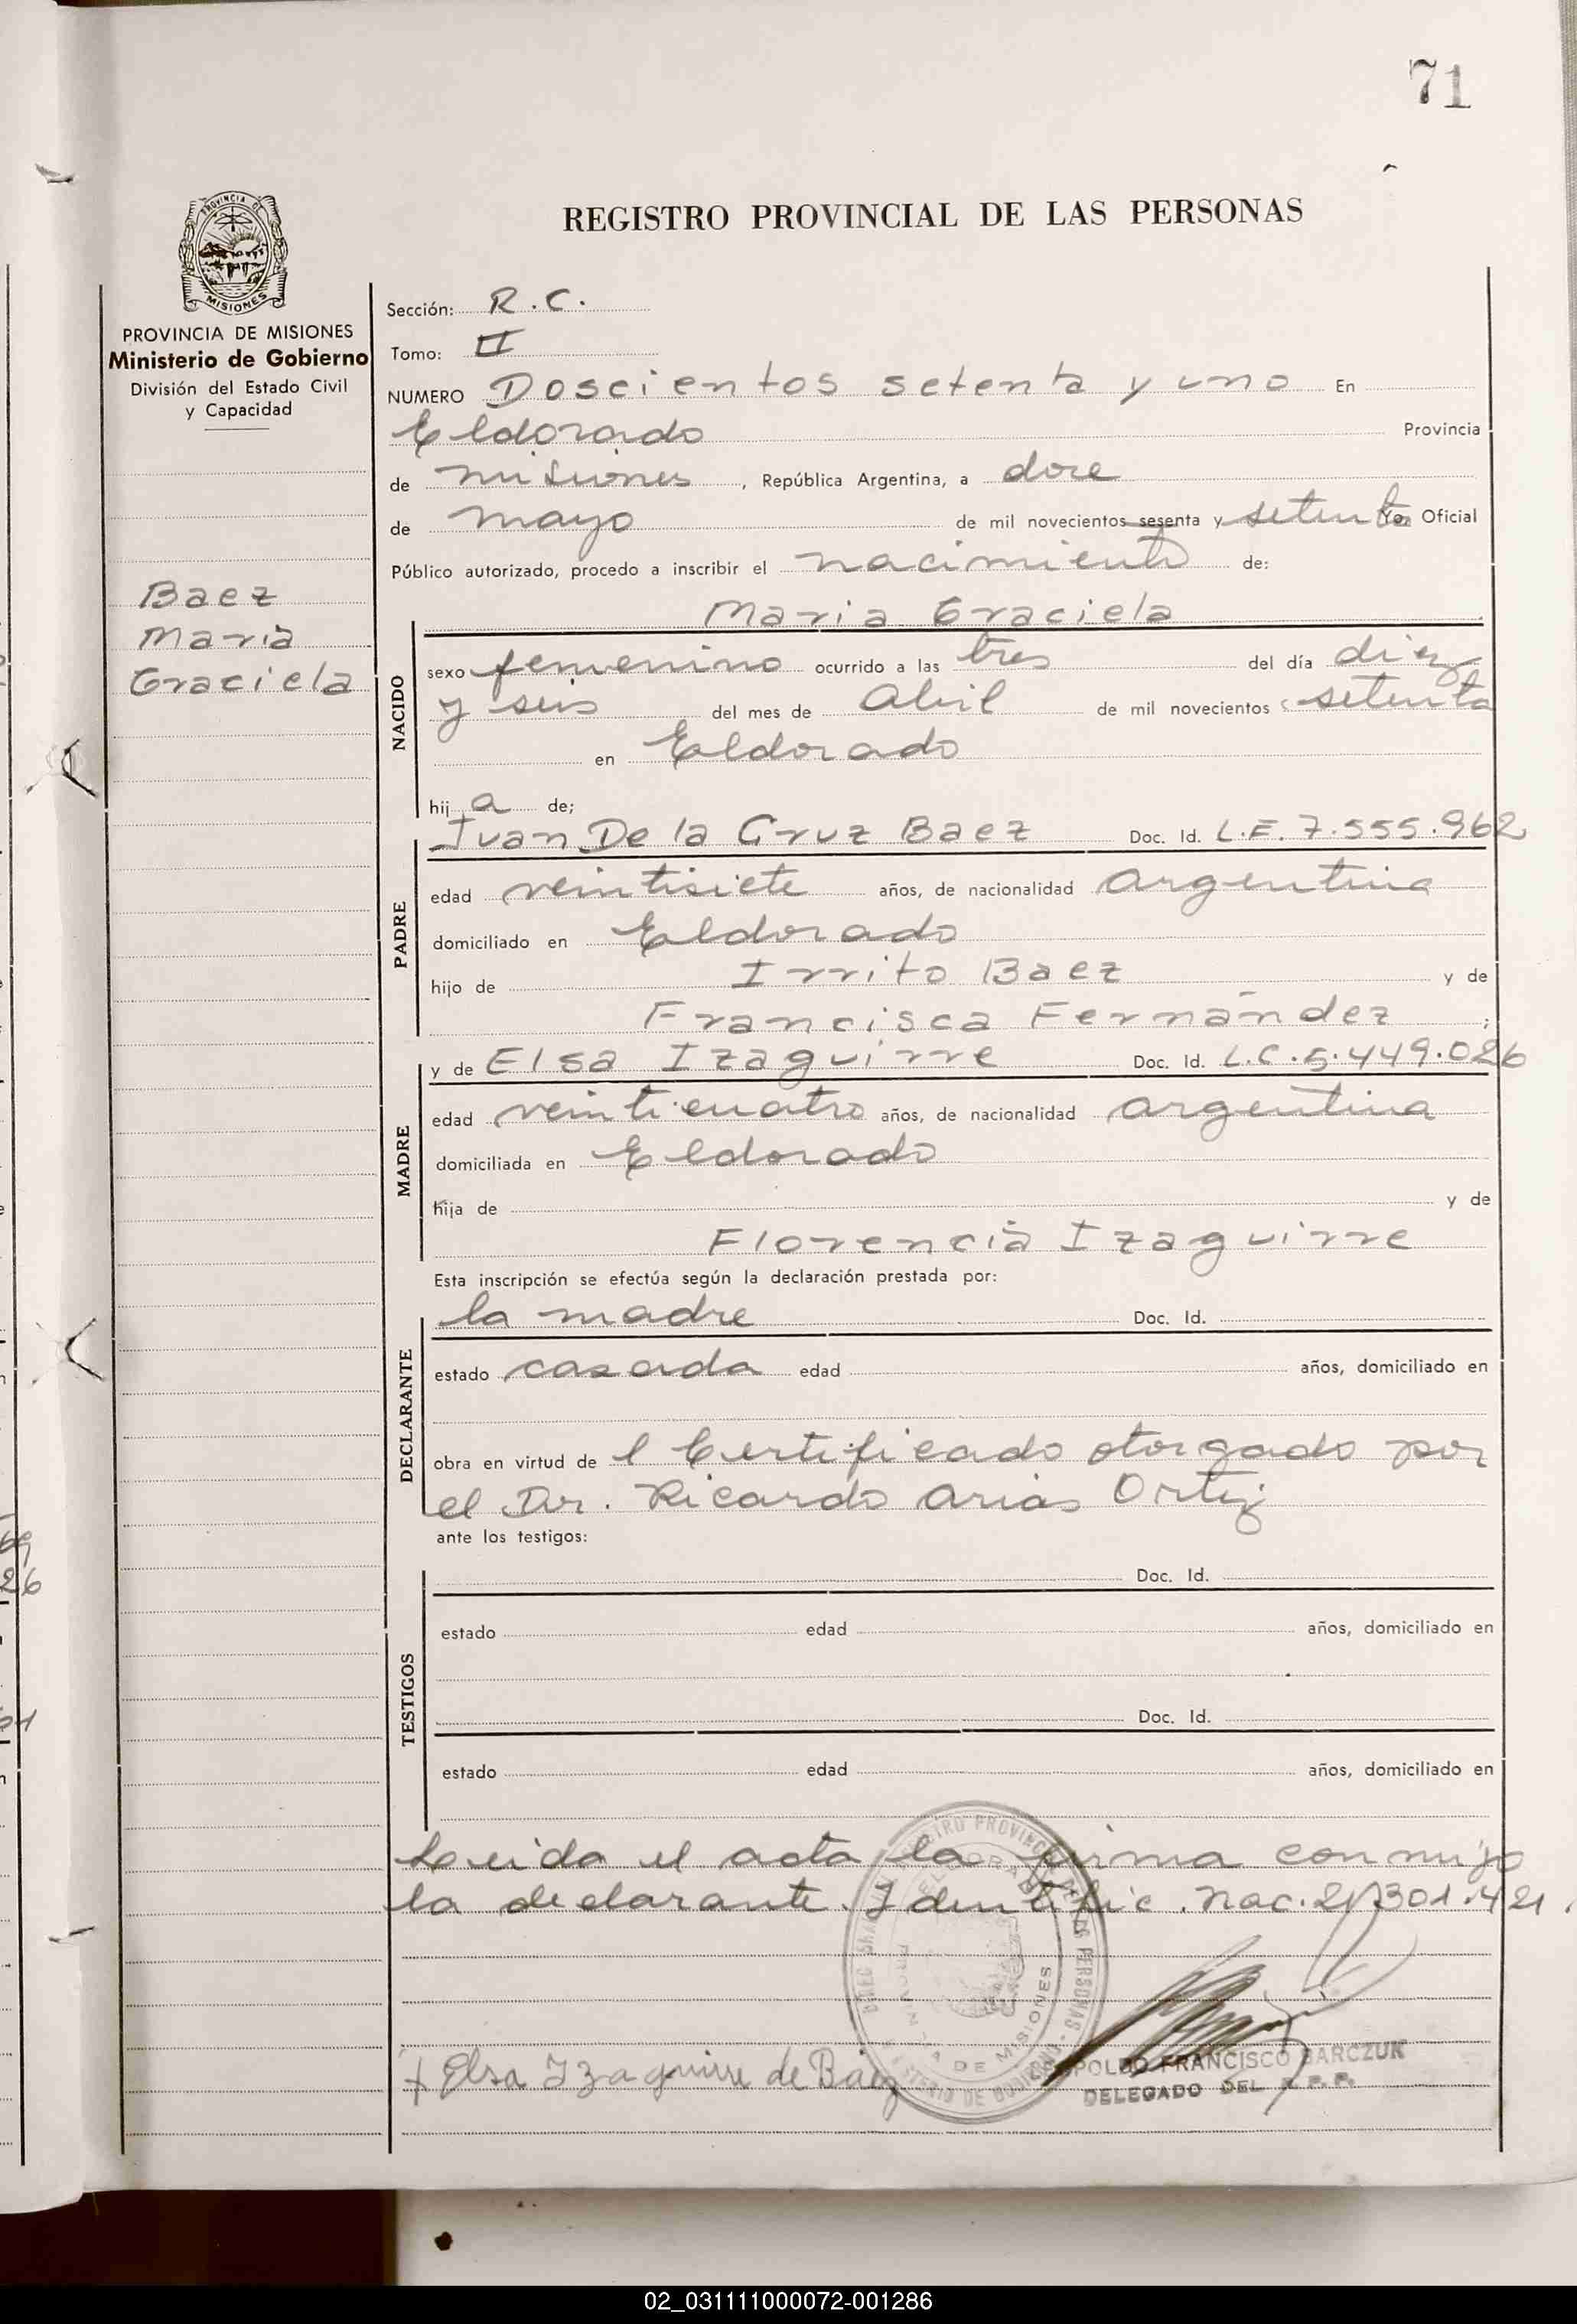 71
REGISTRO PROVINCIAL DE LAS PERSONAS
PROVINCIA DE
MISIONES
PROVINCIA DE MISIONES
Ministerio de Gobierno
División del Estado Civil
y Capacidad
Baez
Maria
Graciela
Sección: R.C.
Tomo: II
NUMERO Doscientos setenta y uno En
Eldorado Provincia
de misiones, República Argentina, a doce
de mayo de mil novecientos sesenta y setenta Yo, Oficial
Público autorizado, procedo a inscribir el nacimiento de:
Maria Graciela
NACIDO
sexo femenino ocurrido a las tres del día diez
y seis del mes de Abril de mil novecientos setenta
en Eldorado
hij a de;
PADRE
Juan De la Cruz Baez Doc. Id. L.E. 7.555.962
edad veintisiete años, de nacionalidad argentina
domiciliado en Eldorado
hijo de Irrito Baez y de
Francisca Fernández ;
MADRE
y de Elsa Izaguirre Doc. Id. L.C. 5.449.026
edad veinticuatro años, de nacionalidad argentina
domiciliada en Eldorado
hija de y de
Florencia Izaguirre
Esta inscripción se efectúa según la declaración prestada por:
DECLARANTE
la madre Doc. Id.
estado casada edad años, domiciliado en
obra en virtud de l Certificado otorgado por
el Dr. Ricardo Arias Ortiz
ante los testigos:
TESTIGOS
Doc. Id.
estado edad años, domiciliado en
Doc. Id.
estado edad años, domiciliado en
Leida el acta, la firma conmigo
la declarante. Identific. Nac. 21.301.421.
ELDORADO
MISIONES
+ Elsa Izaguirre de Báez
FRANCISCO BARCZUK
DELEGADO DEL R.P.P.
02_031111000072-001286